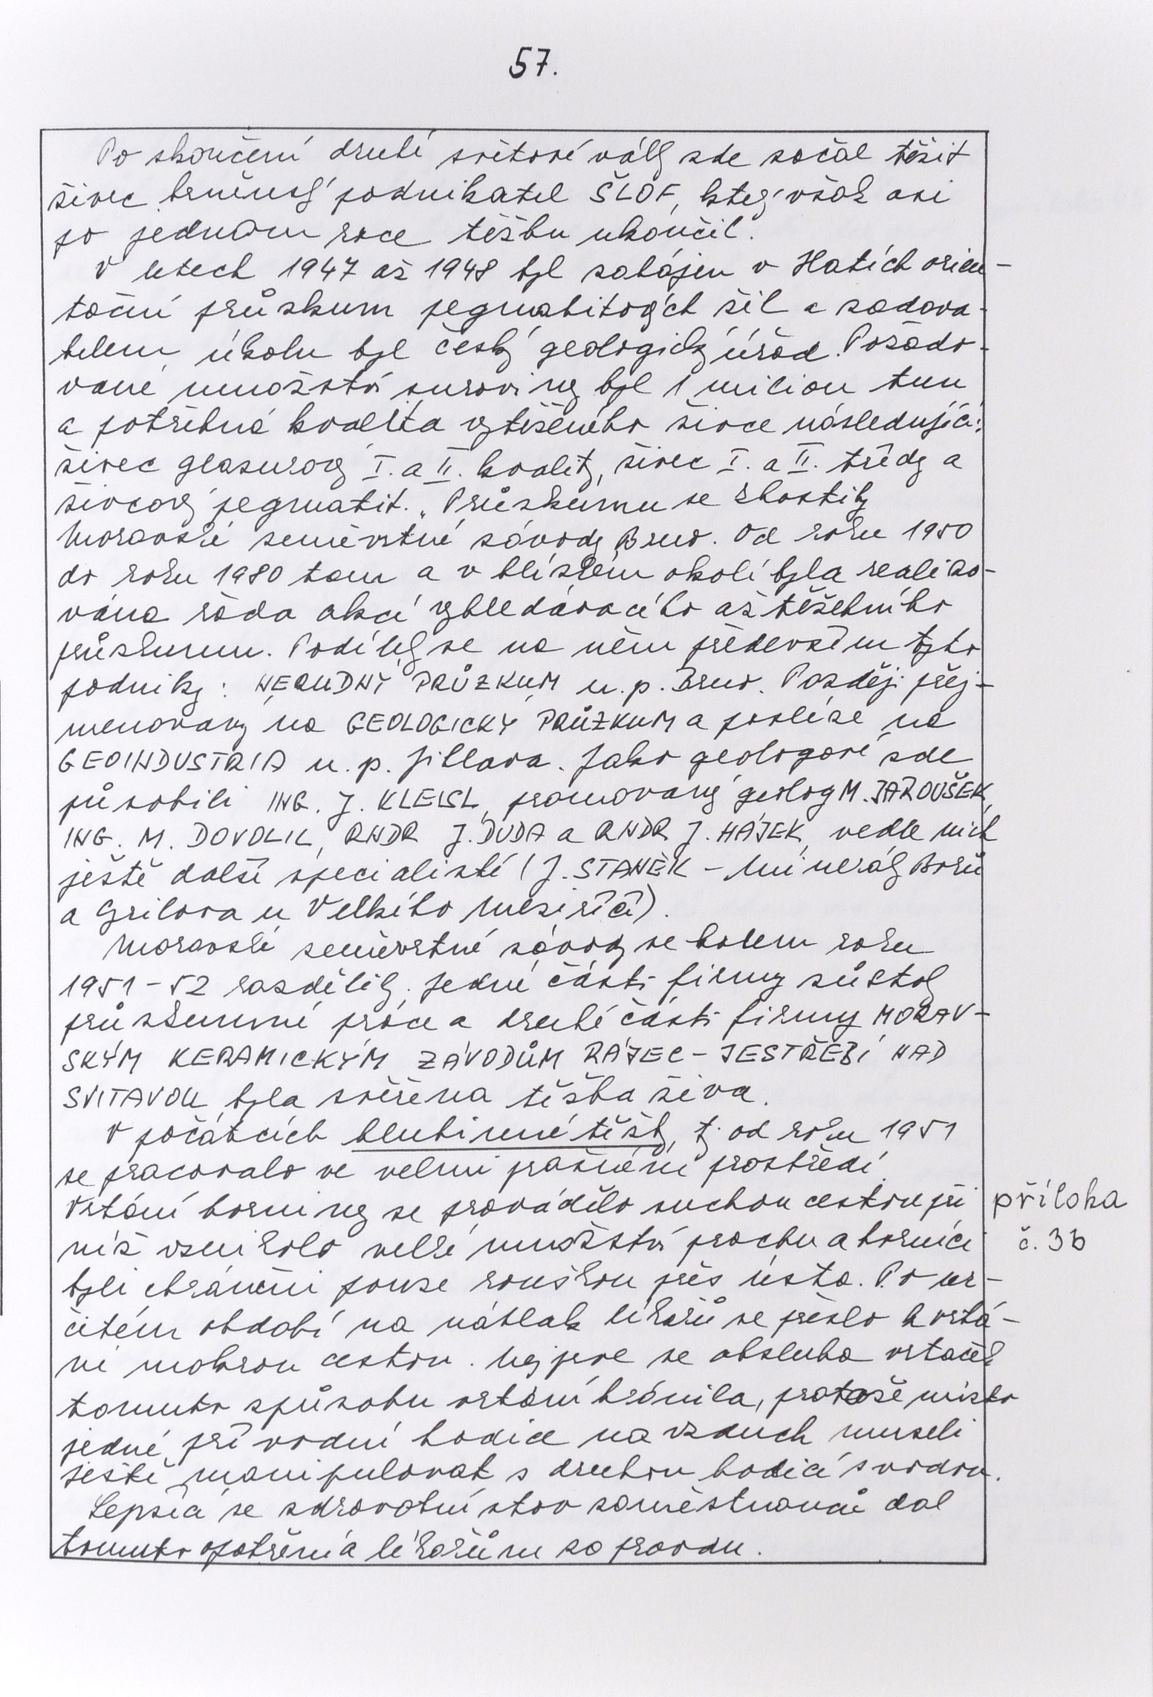 57.
Po skončení druhé světové války zde začal těžit
živec brněnský podnikatel ŠLOF, který však asi
po jednom roce těžbu ukončil.
V letech 1947 až 1948 byl zahájen v Hatích orien-
tační průzkum pegmatitových žil a zadova-
telem úkolu byl český geologický úřad. Požado-
vané množství suroviny byl 1 milion tun
a potřebná kvalita vytěženého živce následující:
živec glazurový I. a II. kvality, živec I. a II. třídy a
živcový pegmatit. Průzkumu se zhostily
Moravské seměvrtné závody Brno. Od roku 1950
do roku 1980 tam a v blízkém okolí byla realizo-
vána řada akcí vyhledávacího až těžebního
průzkumu. Podílely se na něm především tyto
podniky: NERUDNÝ PRŮZKUM n.p. Brno. Později přej-
menovaný na GEOLOGICKÝ PRŮZKUM a posléze na
GEOINDUSTRIA n.p. Jihlava. Jako geologové zde
působili ING. J. KLEISL, promovaný geolog M. JAROUŠEK,
ING. M. DOVOLIL, RNDR J. DUDA a RNDR J. HÁJEK, vedle nich
ještě další specialisté (J. STANĚK – Minerály Borů
a Grilova u Velkého Meziříčí).
Moravské seměvrtné závody se kolem roku
1951-52 rozdělily. Jedné části firmy zůstaly
průzkumné práce a druhé části firmy MORAV-
SKÝM KERAMICKÝM ZÁVODŮM RÁJEC-JESTŘEBÍ NAD
SVITAVOU byla svěřena těžba živa.
V počátcích hlubinné těžby, tj. od roku 1951
se pracovalo ve velmi prašném prostředí.
Vrtání horniny se provádělo suchou cestou při
příloha
níž vznikalo velké množství prachu a horníci
č. 3b
byli chráněni pouze rouškou přes ústa. Po ur-
čitém období na nátlak lékařů se přešlo k vrtá-
ní mokrou cestou. Nejprve se obsluha vrtaček
tomuto způsobu vrtání bránila, protože místo
jedné přívodní hadice na vzduch museli
ještě manipulovat s druhou hadicí s vodou.
Lepšící se zdravotní stav zaměstnanců dal
tomuto opatření a lékařům za pravdu.